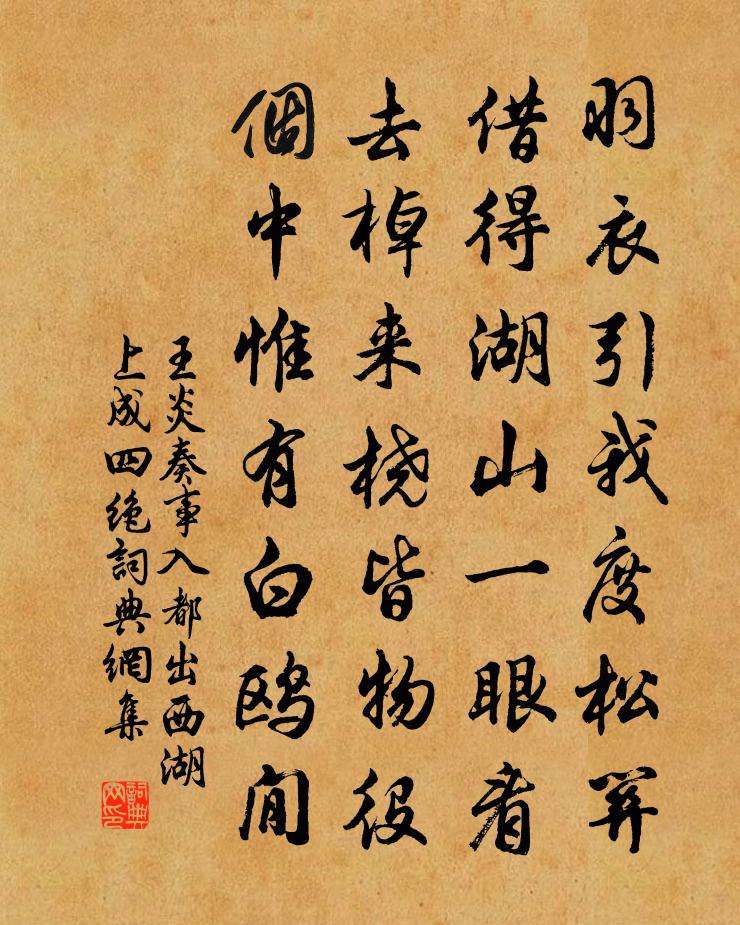 羽衣引我度松關
借得湖山一眼看
去棹来桡皆物役
個中惟有白鸥閒
王炎奏事入都出西湖
上成四绝詞典網集
詞典
网印